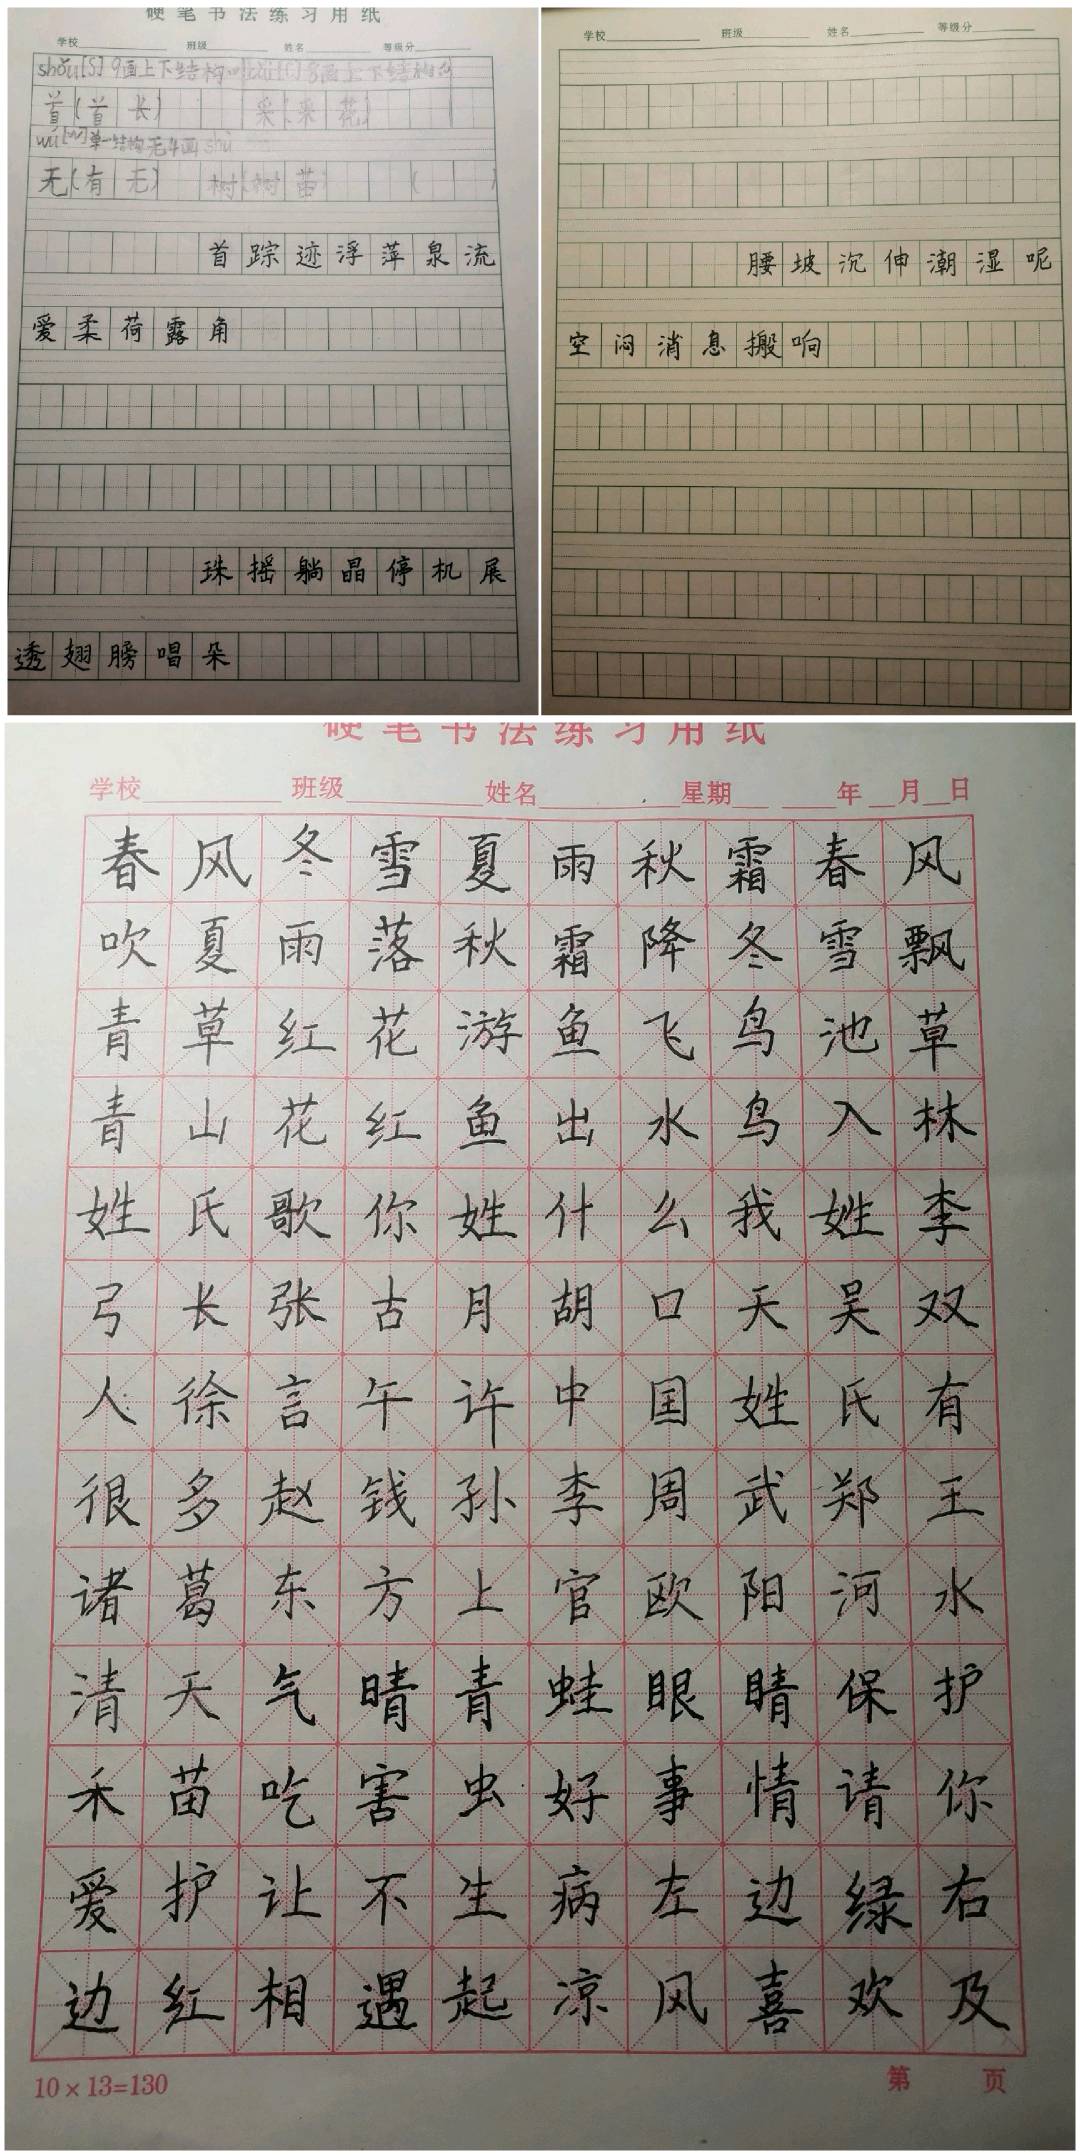 硬笔书法练习用纸
学校 班级 姓名 等级分
shǒu [S] 9画上下结构 8画上下结构
首(首长) 采(采花)
wú [W] 单一结构 无 4画 shù
无(有无) 树(树苗) ( )
首踪迹浮萍泉流
爱柔荷露角
珠摇躺晶停机展
透翅膀唱朵
学校 班级 姓名 等级分
腰坡沉伸潮湿呢
空闷消息搬响
硬笔书法练习用纸
学校 班级 姓名 星期 年 月 日
春风冬雪夏雨秋霜春风
吹夏雨落秋霜降冬雪飘
青草红花游鱼飞鸟池草
青山花红鱼出水鸟入林
姓氏歌你姓什么我姓李
弓长张古月胡口天吴双
人徐言午许中国姓氏有
很多赵钱孙李周武郑王
诸葛东方上官欧阳河水
清天气晴青蛙眼睛保护
禾苗吃害虫好事情请你
爱护让不生病左边绿右
边红相遇起凉风喜欢及
10×13=130 第 页